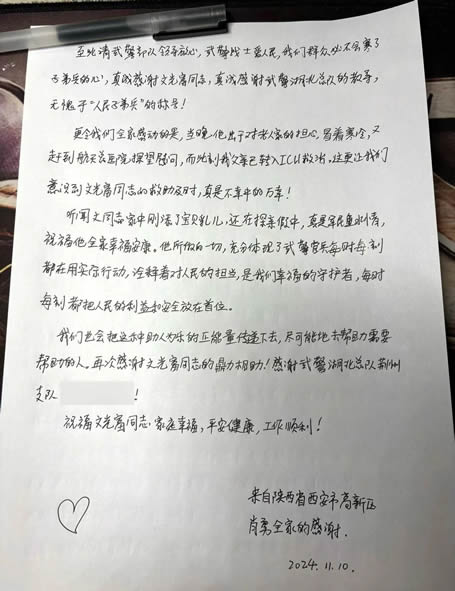 至此请武警部队领导放心,武警战士爱民,我们群众也不会寒了
子弟兵的心,真诚感谢文光富同志,真诚感谢武警湖北总队的教导,
无愧于“人民子弟兵”的称号!
更令我们全家感动的是,当晚他出于对老人家的担心,冒着寒冷,又
赶到航天总医院探望慰问,而此刻我父亲已转入ICU救治,这更让我们
意识到文光富同志的救助及时,真是不幸中的万幸!
听闻文同志家中刚添了宝贝儿,还在探亲假中,真是军民鱼水情,
祝福他全家幸福安康。他所做的一切,充分体现了武警官兵每时每刻
都在用实际行动,诠释着对人民的担当,是我们幸福的守护者,每时
每刻都把人民的利益和安全放在首位。
我们也会把这种助人为乐的正能量传递下去,尽可能地去帮助需要
帮助的人。再次感谢文光富同志的鼎力相助!感谢武警湖北总队荆州
支队 !
祝福文光富同志:家庭幸福,平安健康,工作顺利!
来自陕西省西安市高新区
肖勇全家的感谢.
2024.11.10.